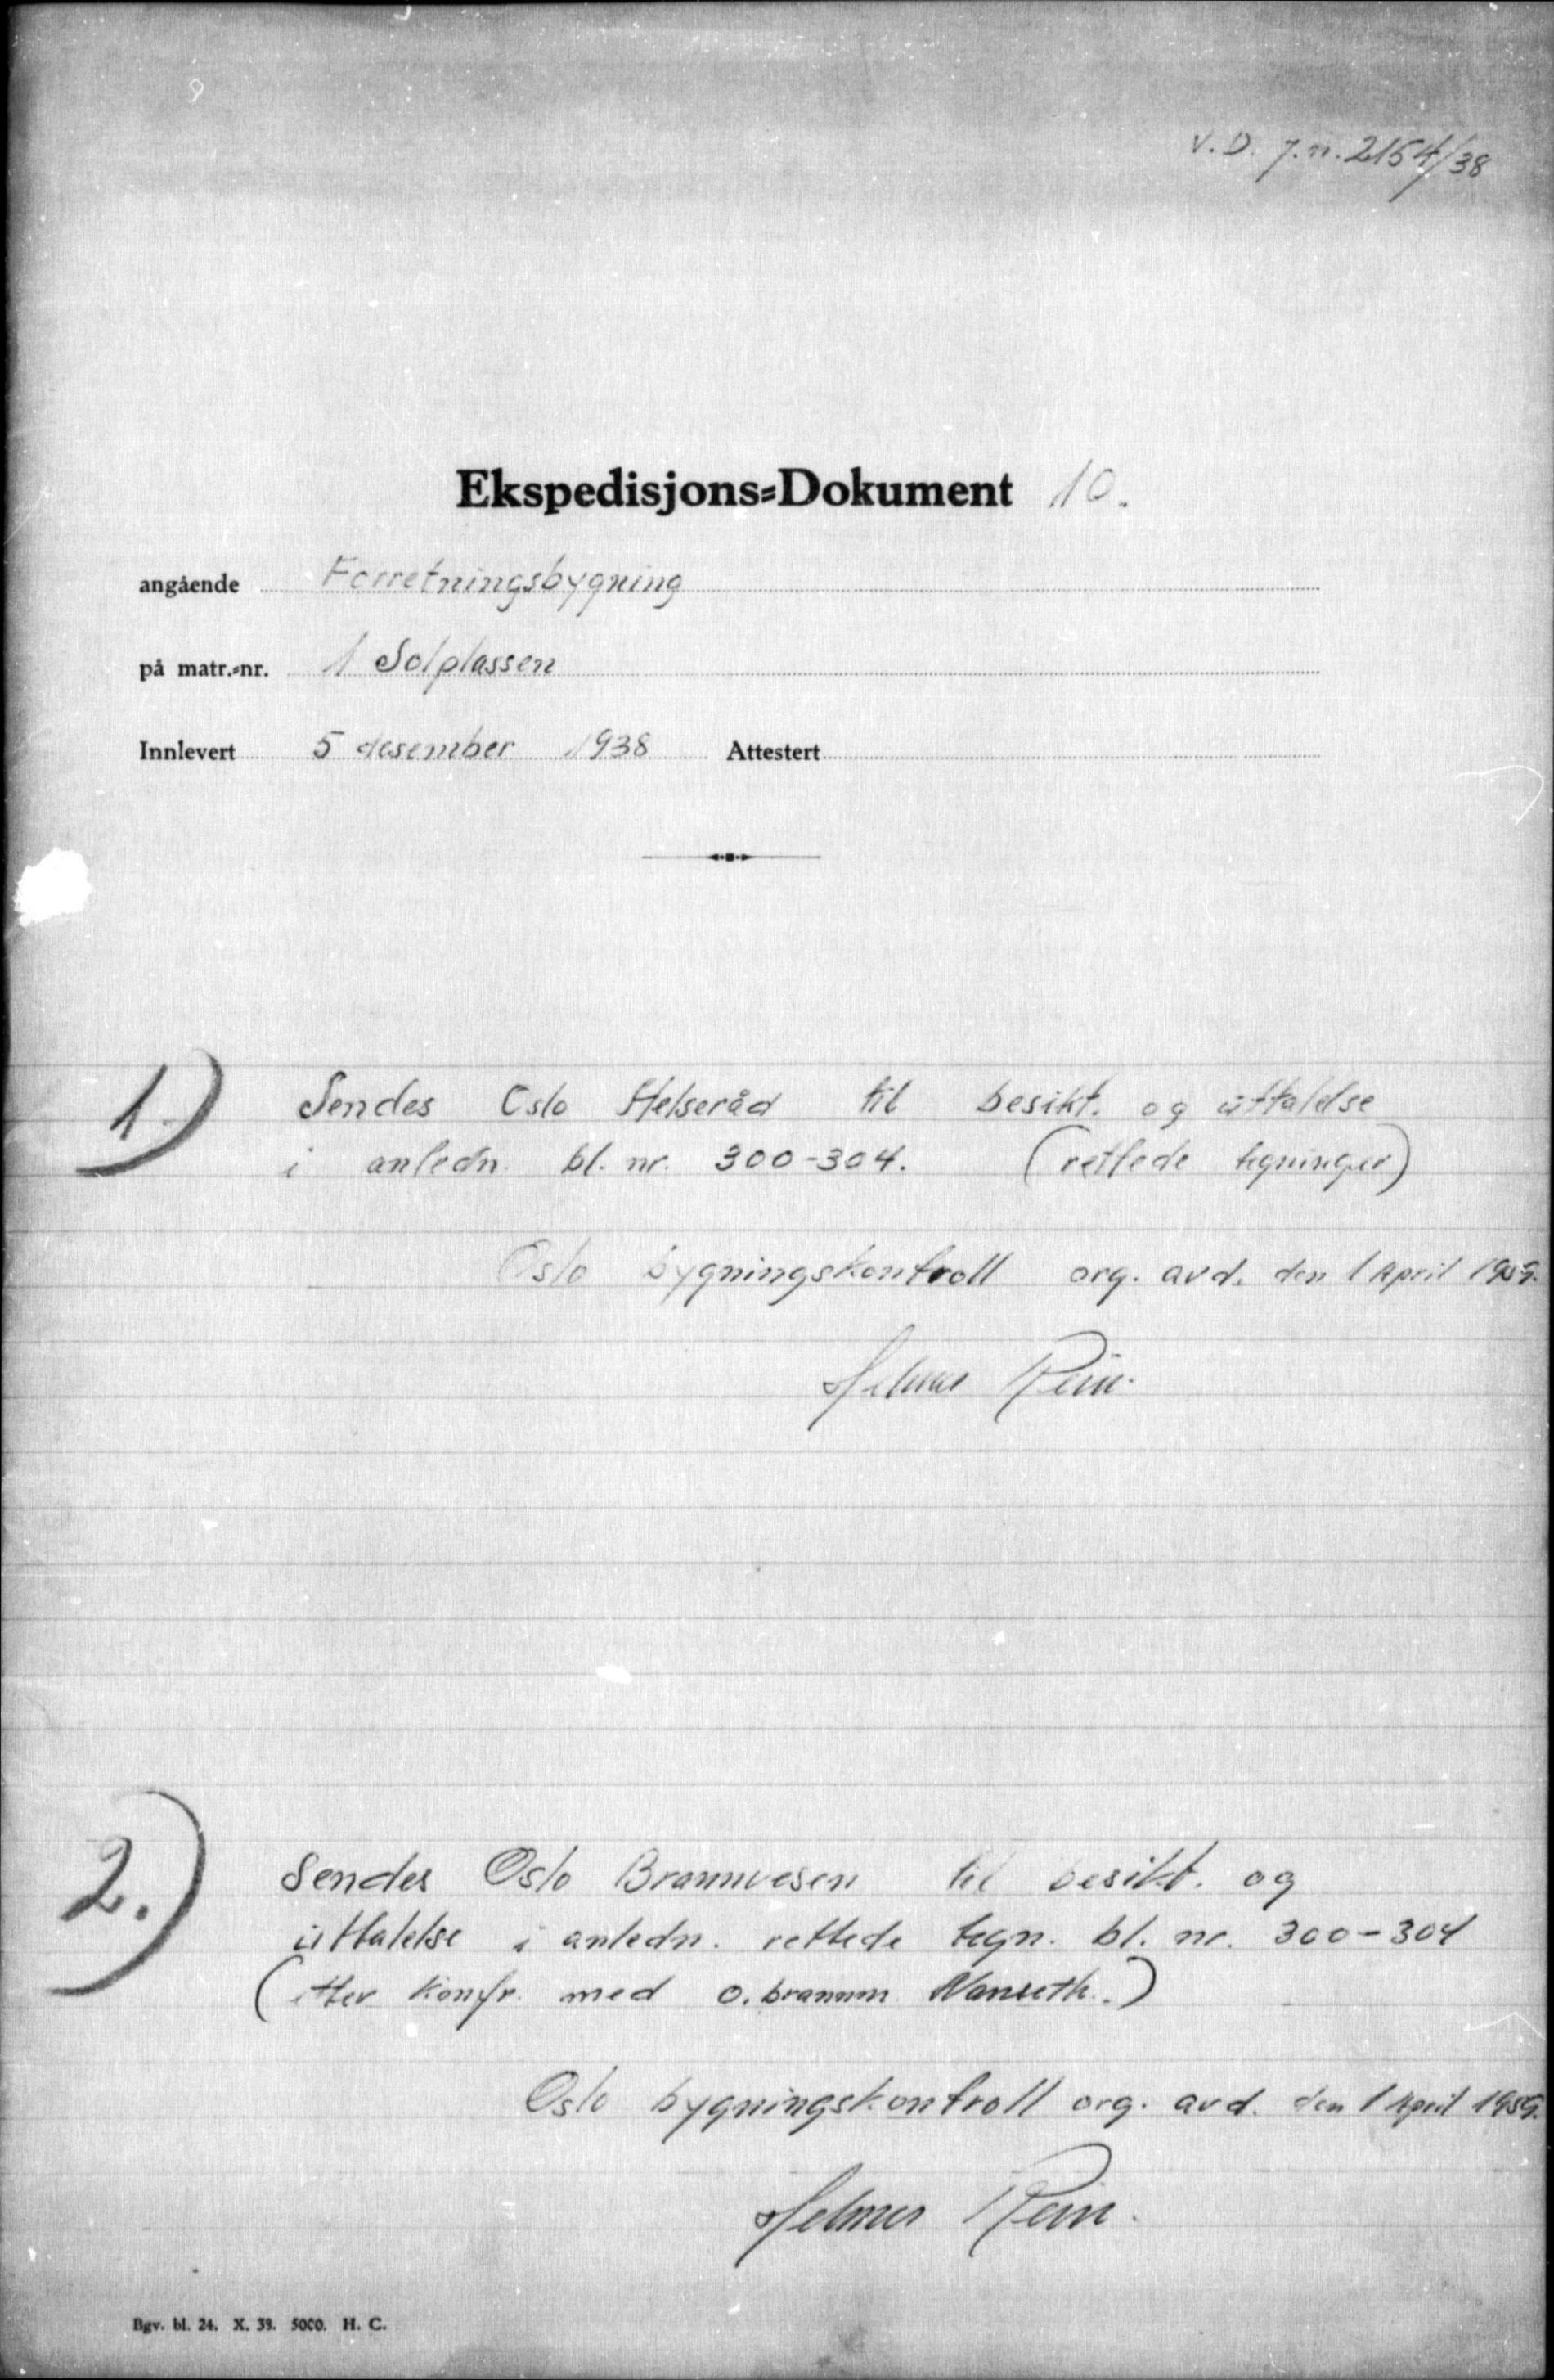 V. D. j.n. 2154/38
Ekspedisjons=Dokument 10.
angående Forretningsbygning
på matr.=nr. 1 Solplassen
Innlevert 5 desember 1938 Attestert
1.) Sendes Oslo Helseråd til besikt. og uttalelse
i anledn. bl. nr. 300-304. (rettede tegninger)
Oslo bygningskontroll org. avd. den 1 April 1959.
Helmer Rein.
2.) Sendes Oslo Brannvesen til besikt. og
uttalelse i anledn. rettede tegn. bl. nr. 300-304
(etter konfr. med o.brannm.
Oslo bygningskontroll org. avd. den 1 April 1959.
Helmer Rein.
Bgv. bl. 24. X. 38. 5000. H. C.